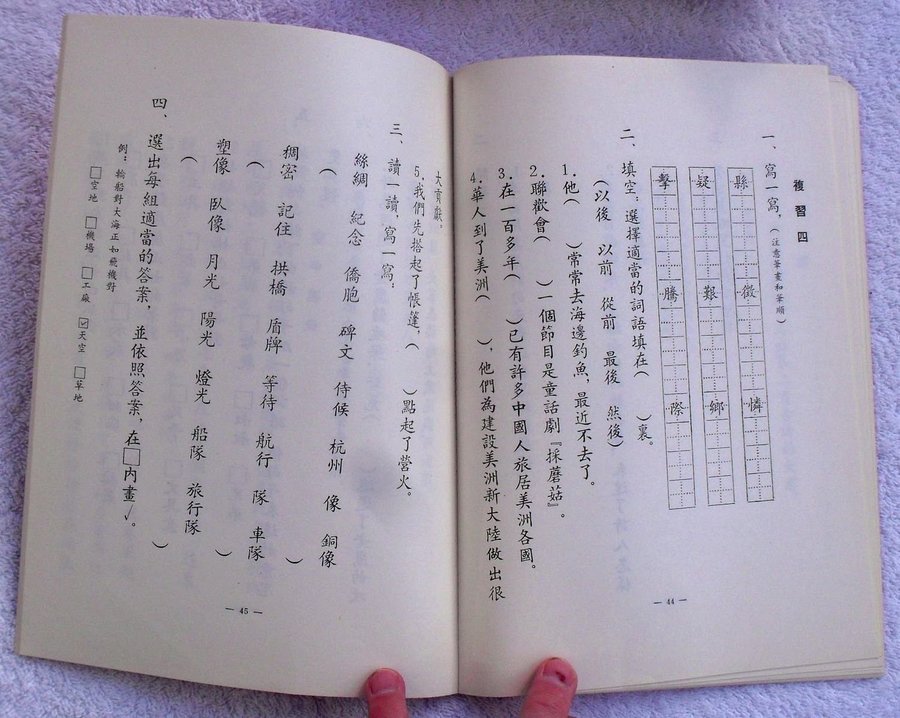 複習四
一、寫一寫，（注意筆畫和筆順）
縣 徵 憐
疑 艱 鄉
擊 騰 際
二、填空：選擇適當的詞語填在（　）裏。
（以後　以前　從前　最後　然後）
1.他（　）常常去海邊釣魚，最近不去了。
2.聯歡會（　）一個節目是童話劇『採蘑菇』。
3.在一百多年（　）已有許多中國人旅居美洲各國。
4.華人到了美洲（　），他們為建設美洲新大陸做出很
— 44 —
大貢獻。
5.我們先搭起了帳篷，（　）點起了營火。
三、讀一讀，寫一寫：
絲綢　紀念　僑胞　碑文　侍候　杭州　像　銅像
（　）
稠密　記住　拱橋　盾牌　等待　航行　隊　車隊
（　）
塑像　臥像　月光　陽光　燈光　船隊　旅行隊
（　）
四、選出每組適當的答案，並依照答案，在□內畫✓。
例：輪船對大海正如飛機對
□空地　□機場　□工廠　☑天空　□草地
— 45 —